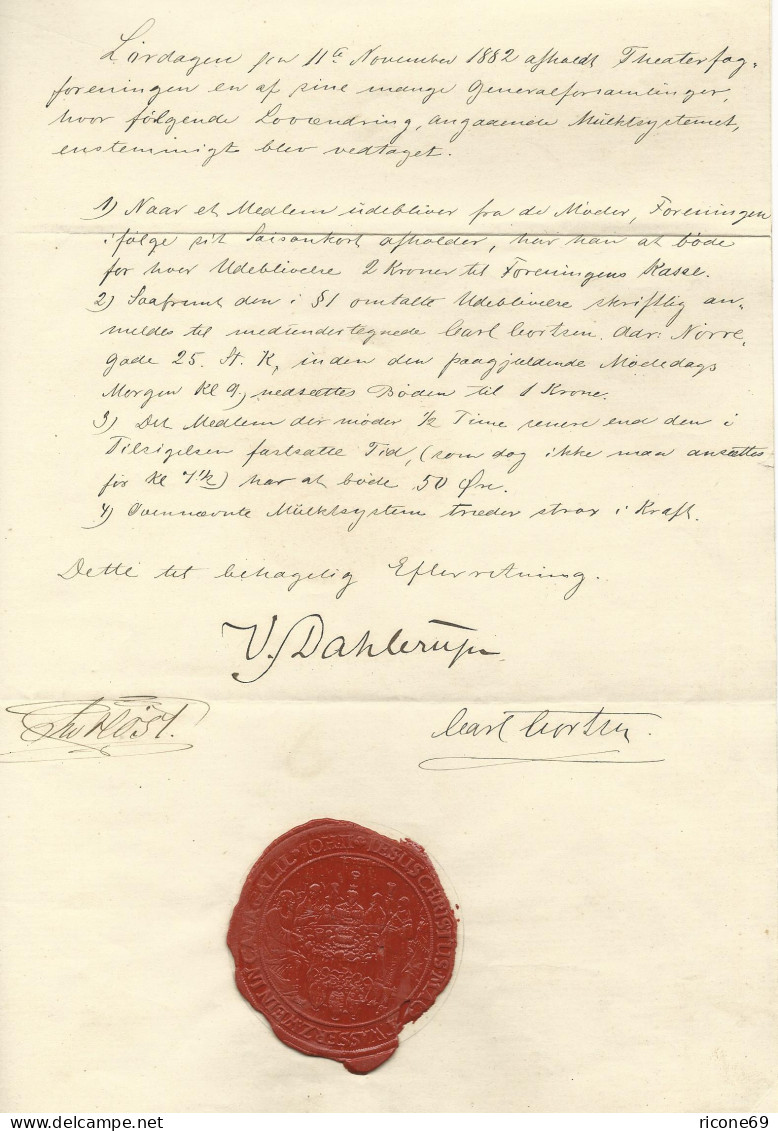 Lørdagen den 11te November 1882 afholdt Theaterfag-
foreningen en af sine mange Generalforsamlinger,
hvor følgende Lovændring, angaaende Mulktsystemet,
enstemmigt blev vedtaget.
1) Naar et Medlem udebliver fra de Møder, Foreningen
ifølge sit Saisonkort afholder, har han at bøde
for hver Udeblivelse 2 Kroner til Foreningens Kasse.
2) Saafremt den i §1 omtalte Udeblivelse skriftlig an-
meldes til medundertegnede Carl Cortsen. Adr: Nørre,
gade 25. St. K, inden den paagjældende Mødedags
Morgen Kl 9, nedsættes Bøden til 1 Krone.
3) Det Medlem der møder 1/2 Time senere end den i
Tilsigelsen fastsatte Tid, (som dog ikke maa ansættes
før Kl 7 1/2) har at bøde 50 Øre.
4) Ovennævnte Mulktsystem træder strax i Kraft.
Dette til behagelig Efterretning.
V. Dahlerup
Høst.
Carl Cortsen.
JESUS CHRISTUS
WASSER WEIN IN CANA GALIL IOH II
ricone69